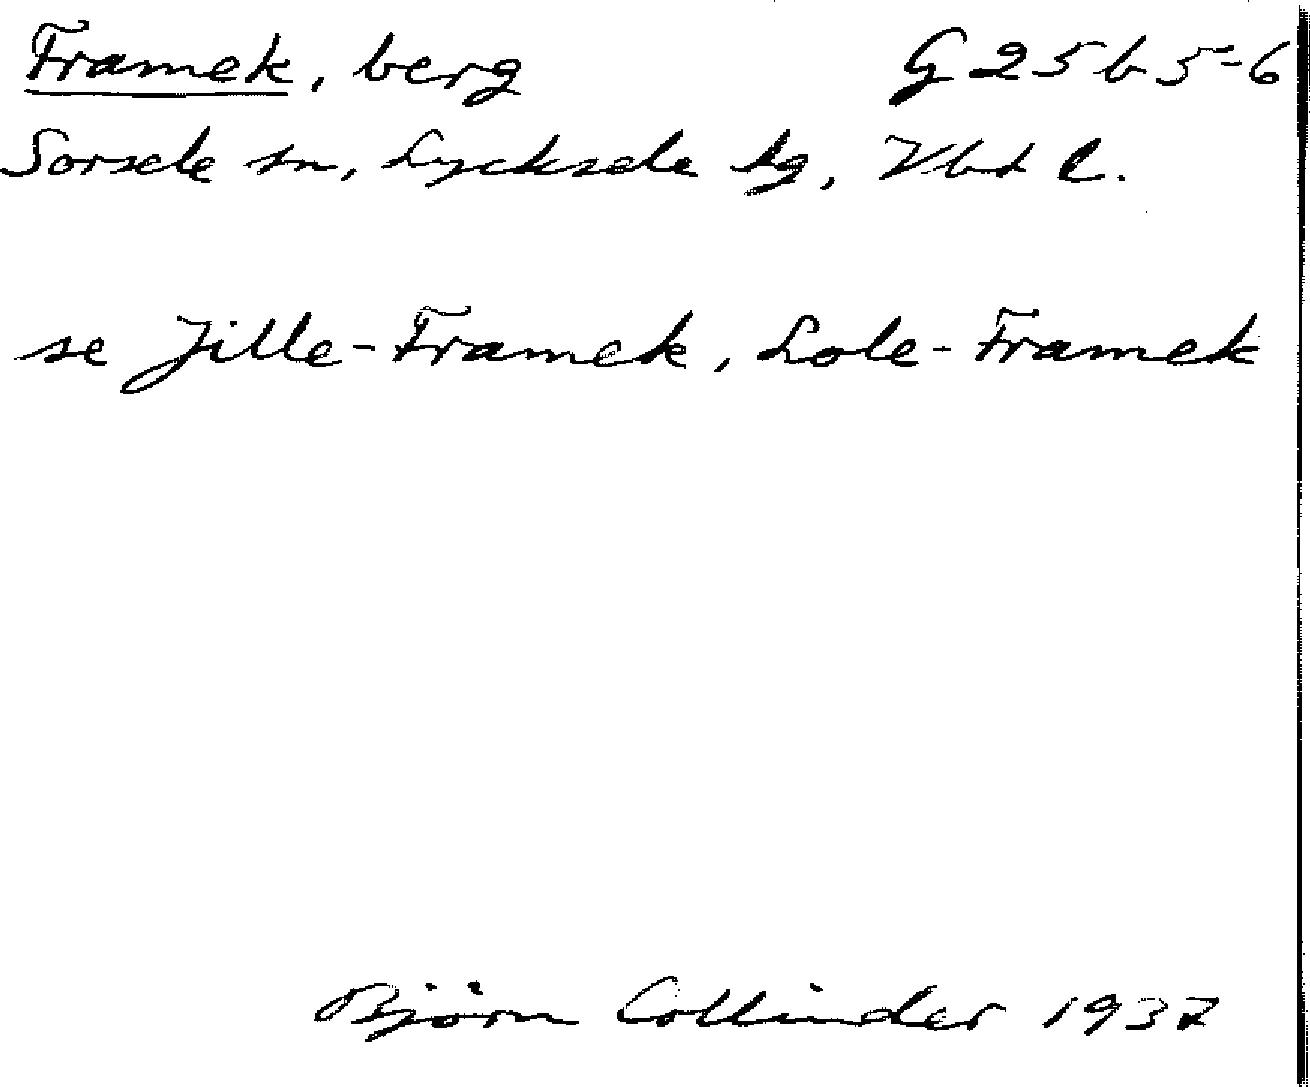 Framek, berg G 25 b 5-6
Sorsele sn, Lycksele lg, Vbtn l.
se Jille-Framek, Lole-Framek
Björn Collinder 1937